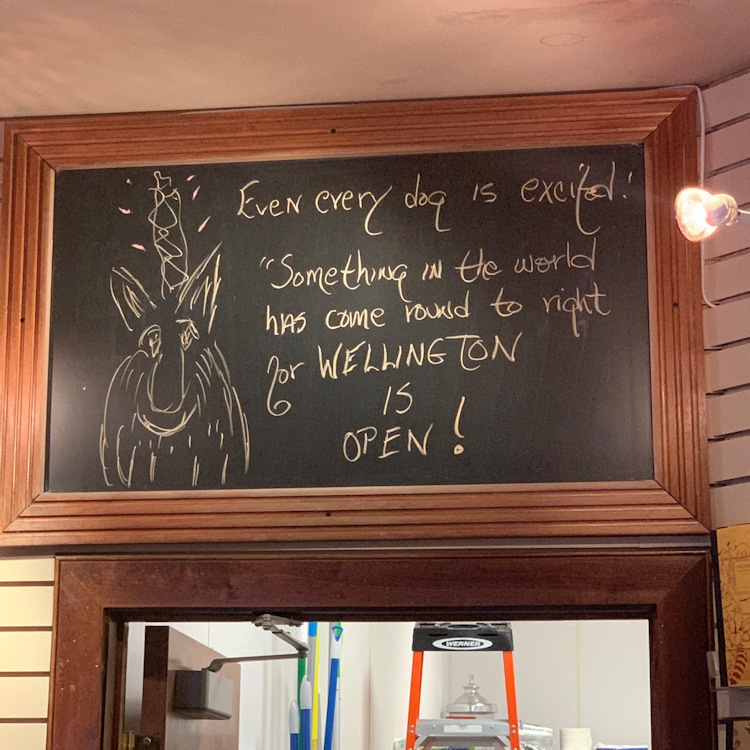 Even every dog is excited!
"Something in the world
has come round to right
for WELLINGTON
IS
OPEN!
WERNER